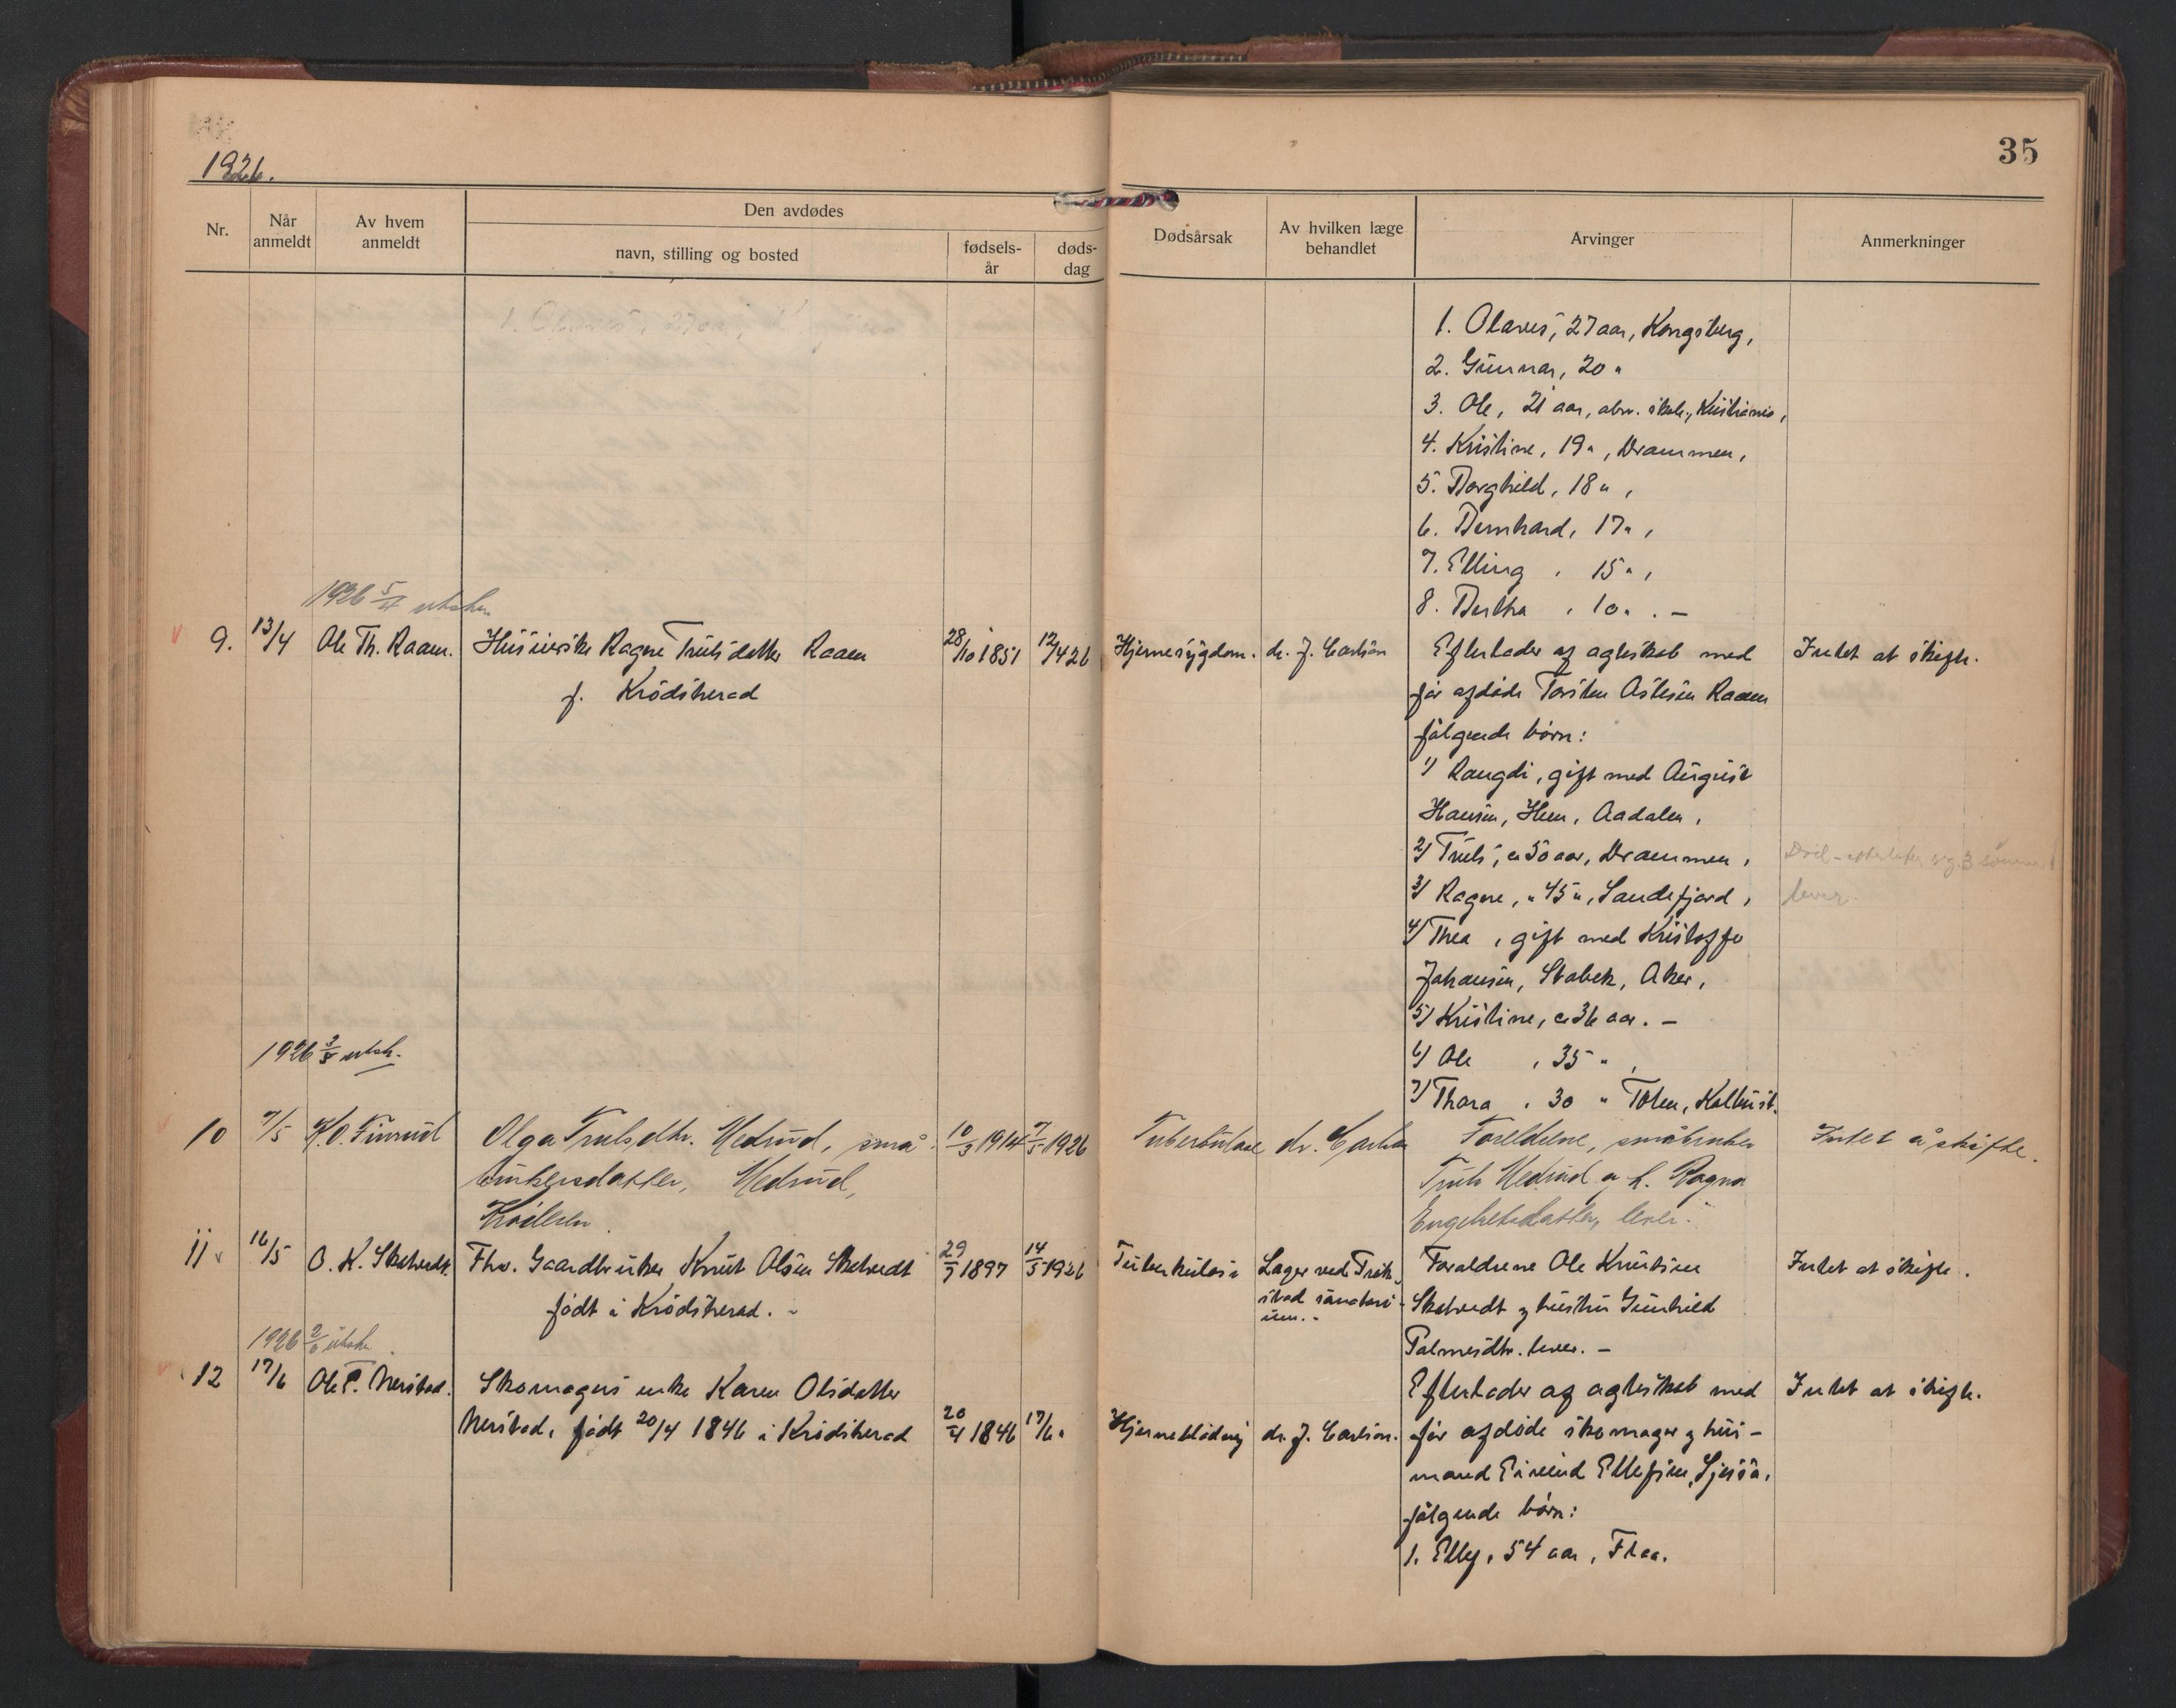 1926.
35
Nr.
Når anmeldt
Av hvem anmeldt
Den avdødes
navn, stilling og bosted
fødsels-år
døds-dag
Dødsårsak
Av hvilken læge behandlet
Arvinger
Anmerkninger
1. Olaves, 27 aar, Kongsberg,
2. Gunnar, 20 "
3. Ole, 21 aar, Kristiania,
4. Kristine, 19 ", Drammen,
5. Borghild, 18 ",
6. Bernhard, 17 ",
7. Elling, 15 ",
8. Bertha, 10 ". -
1926 5/4
9. 13/4 Ole Th. Raaen. Ragne Trulsdatter Raaen 28/10 1851 12/4 26 Hjernesygdom. dr. J. Carlson Efterlader af ægteskab med Intet at skifte.
f. Krødsherad
før afdøde Torsten Raaen
følgende børn:
1) Rangdi, gift med August
Hansen, Hen, Aadalen,
2) Truls, ca 50 aar, Drammen,
3) Ragne, " 45 ", Sandefjord,
lever
4) Thea, gift med Kristoffer
Johansen, Stabek, Aker,
5) Kristine, ca 36 aar. -
6) Ole, 35 ",
7) Thora, 30 " Toten, Kolbust.
1926 3/5 utsk.
10 7/5 K. O. Finrud Olga Trulsdtr. Medrud, små- 10/3 1914 7/5 1926 Tuberkulose dr. Carlson Foreldrene, småbruker Intet å skifte.
brukersdatter, Medrud,
Krødern.
Truls Medrud og h. Ragna
Engebretsdatter, lever.
11 16/5 O. K. Skalvedt. Fhv. Gaardbruker Knut Olsen Skalvedt 29/7 1897 14/5 1926 Tuberkulose Læger ved Forældrene Ole Knutsen Intet at skifte.
født i Krødsherad. -
sanatori-
um. -
Skalvedt og hustru Gunhild
Palmesdtr. lever. -
1926 utskr.
12 17/6 Ole Nerstad. Skomagers enke Karen Olsdatter Efterlader af ægteskab med Intet at skifte.
Nerstad, født 20/4 1846 i Krødsherad 20/4 1846 17/6 " Hjerneblødning dr. J. Carlson. før afdøde skomager og hus-
mand Eivind Ellefsen
følgende børn:
1. Elly, 54 aar, Flaa.